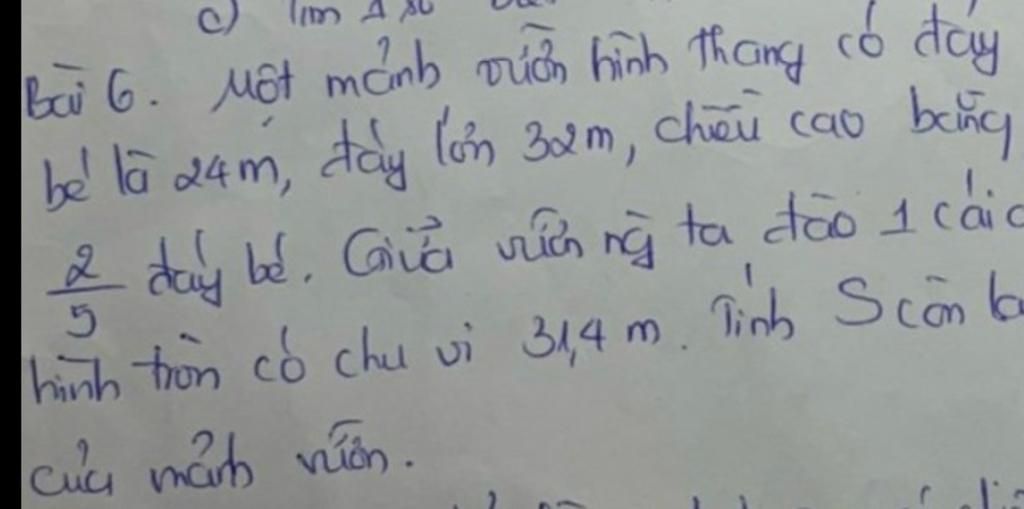 c) Tìm 1 số
Bài 6. Một mảnh vườn hình thang có đáy
bé là 24m, đáy lớn 32m, chiều cao bằng
2/5 đáy bé. Giữa vườn ng ta đào 1 cái
hình tròn có chu vi 31,4 m. Tính S còn
của mảnh vườn.